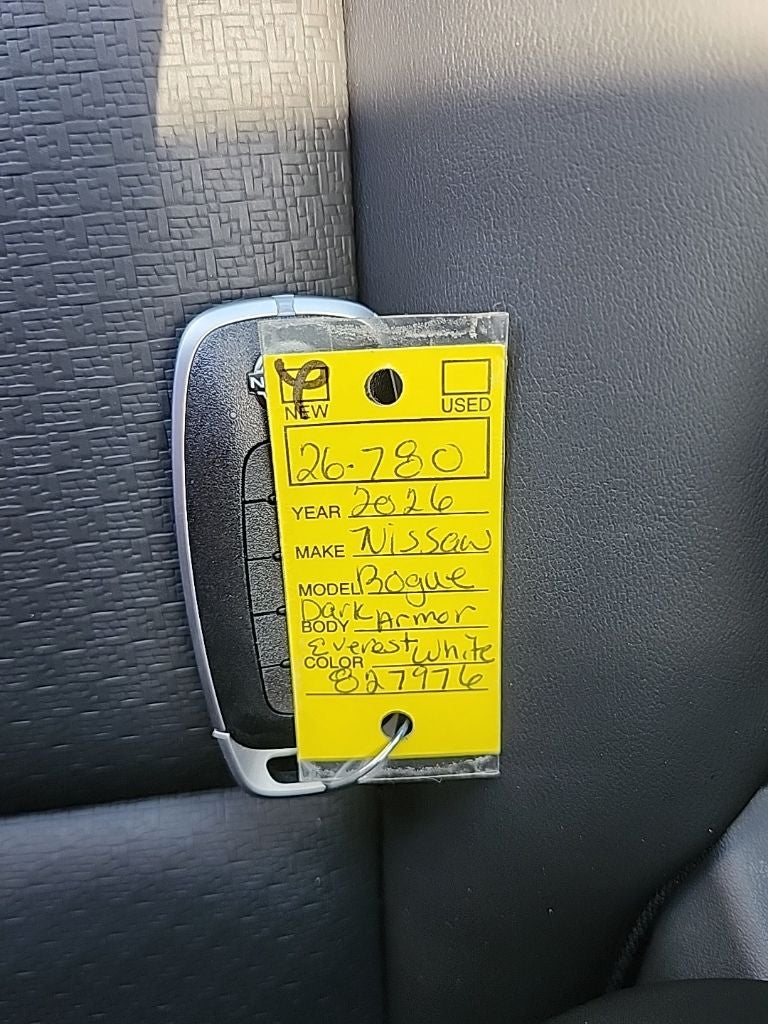 NEW USED
26-780
YEAR 2026
MAKE Nissan
MODEL Rogue
BODY Dark Armor
COLOR Everest White
827976